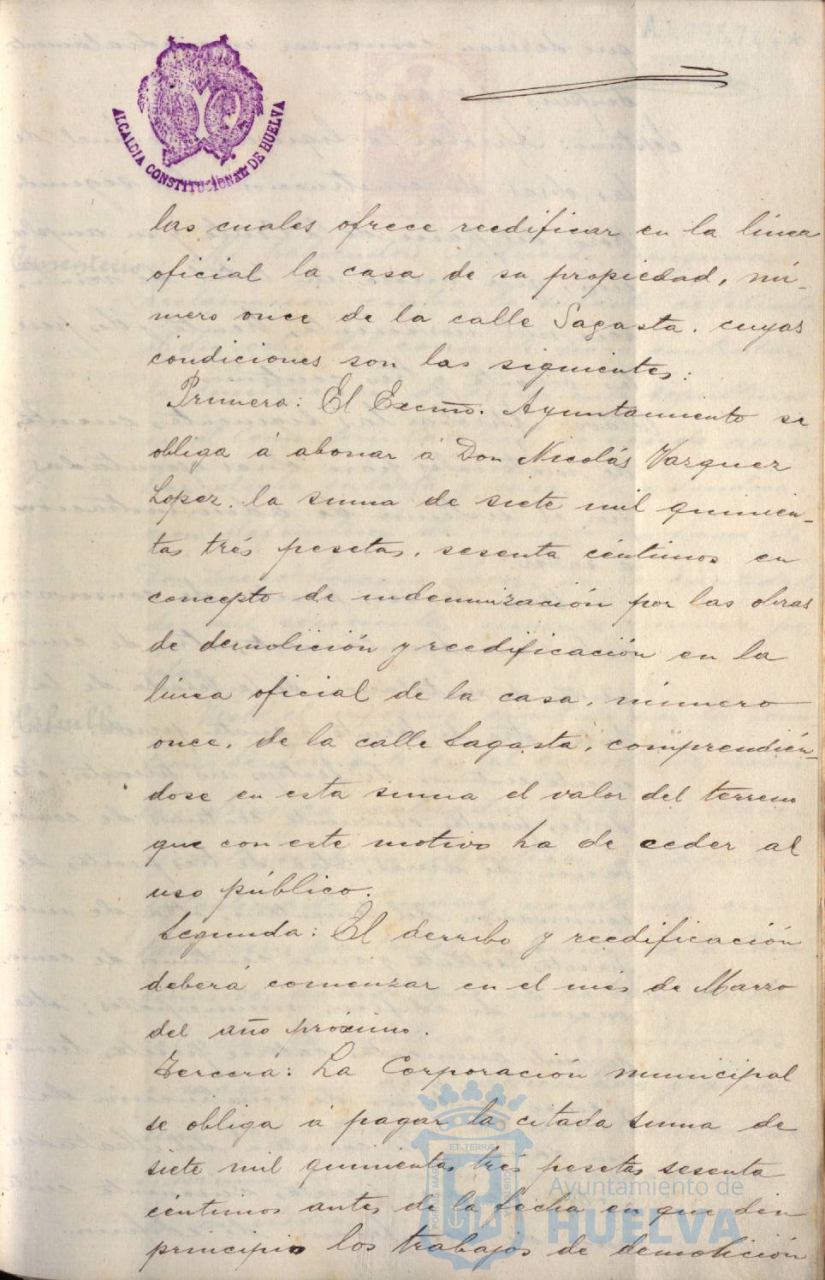 ALCALDIA CONSTITUCIONAL DE HUELVA
las cuales ofrece reedificar en la línea
oficial la casa de su propiedad, nú-
mero once de la calle Sagasta, cuyas
condiciones son las siguientes:
Primera: El Excmo. Ayuntamiento se
obliga á abonar á Don Nicolás Vazquez
Lopez, la suma de siete mil quinien-
tas trés pesetas, sesenta céntimos en
concepto de indemnización por las obras
de demolición y reedificación en la
línea oficial de la casa, número
once, de la calle Sagasta, comprendién-
dose en esta suma el valor del terreno
que con este motivo ha de ceder al
uso público.
Segunda: El derribo y reedificación
deberá comenzar en el més de Marzo
del año próximo.
Tercera: La Corporación municipal
se obliga á pagar la citada suma de
siete mil quinientas trés pesetas sesenta
céntimos antes de la fecha en que den
principio los trabajos de demolición
ET TERRA
Ayuntamiento de
HUELVA